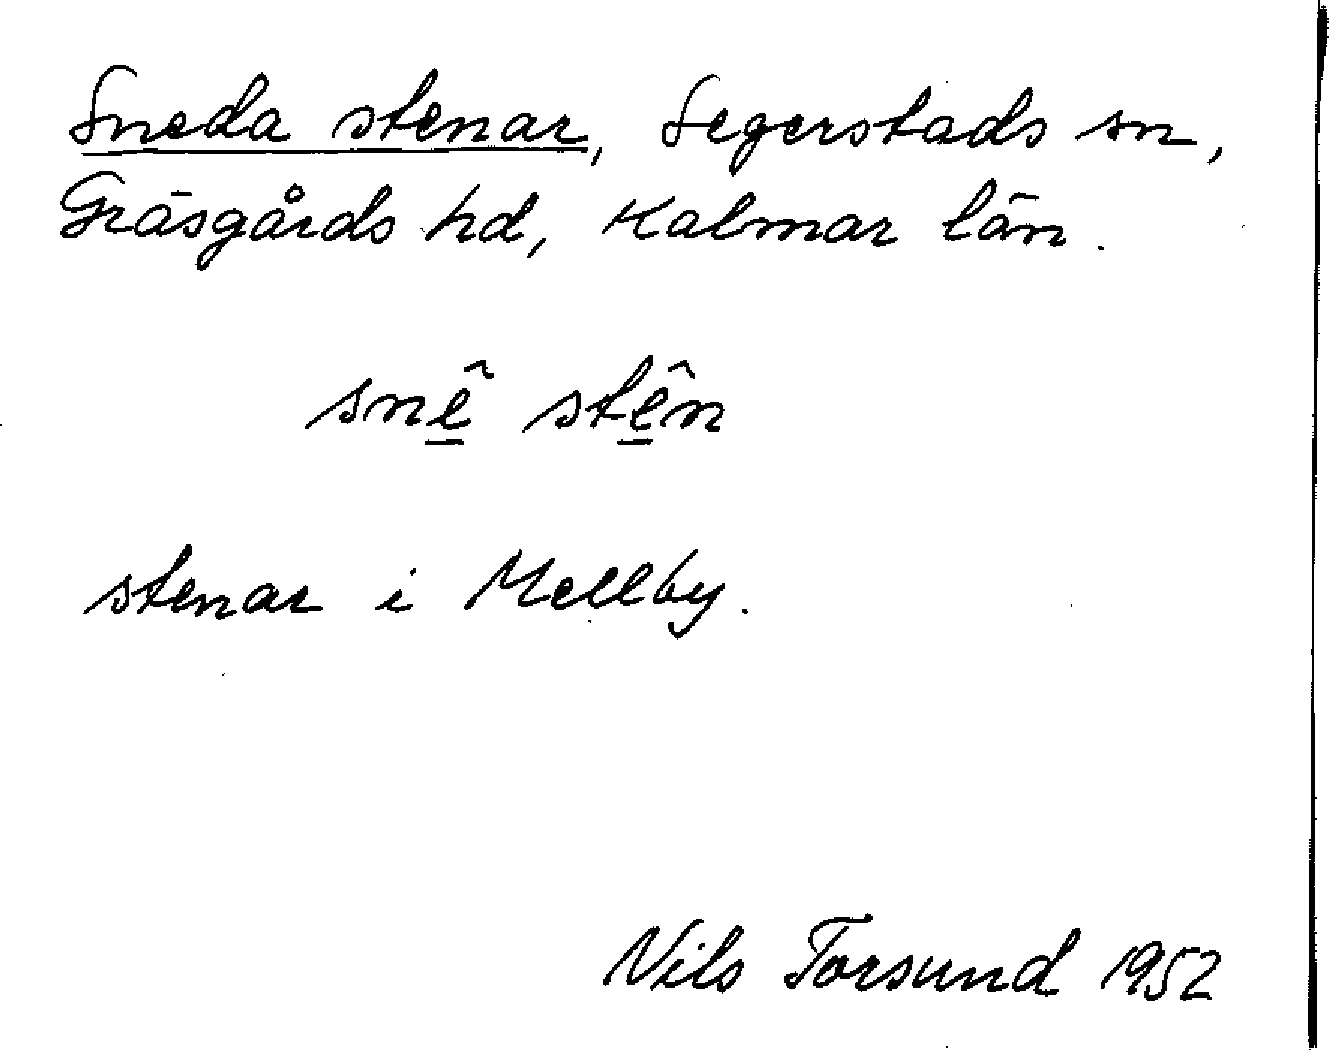 Sneda stenar, Segerstads sn,
Gräsgårds hd, Kalmar län.
snê̱ stê̱n
stenar i Mellby.
Nils Torsund 1952